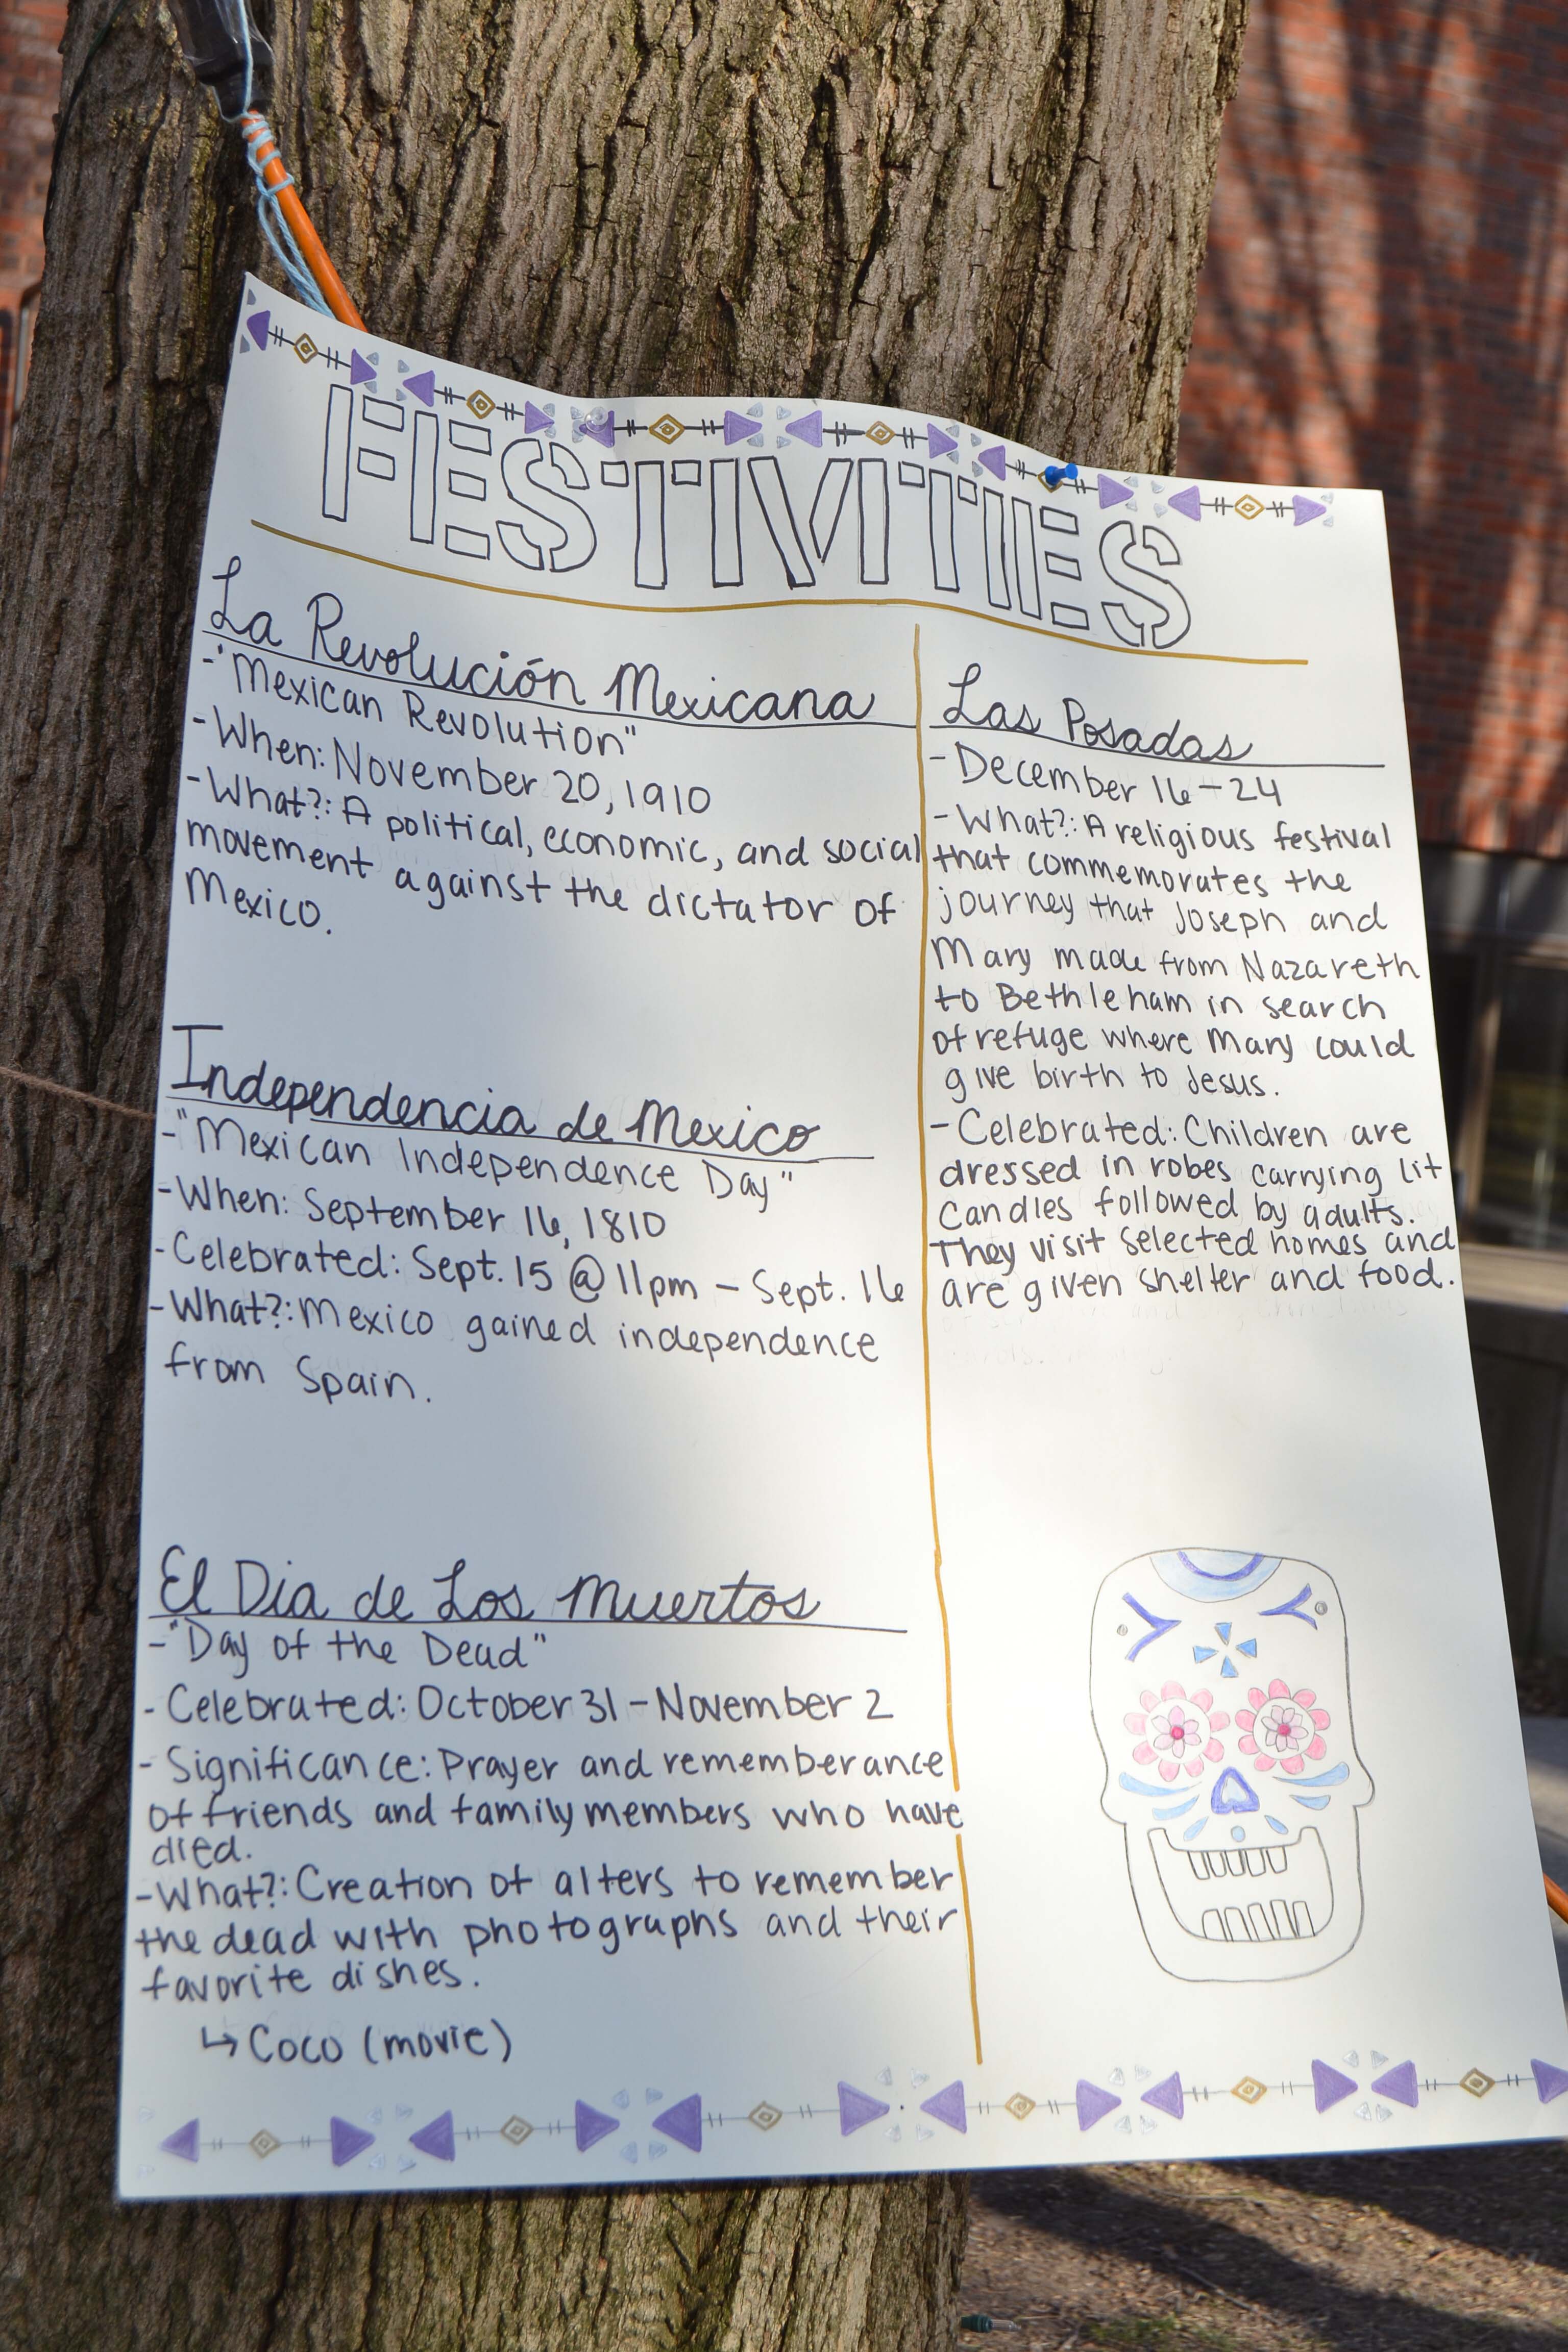 FESTIVITIES
La Revolución Mexicana
-"Mexican Revolution"
-When: November 20, 1910
-What?: A political, economic, and social
movement against the dictator of
Mexico.
Independencia de Mexico
-"Mexican Independence Day"
-When: September 16, 1810
-Celebrated: Sept. 15 @ 11pm - Sept. 16
-What?: Mexico gained independence
from Spain.
El Dia de Los Muertos
-"Day of the Dead"
- Celebrated: October 31 - November 2
- Significance: Prayer and rememberance
of friends and family members who have
died.
-What?: Creation of alters to remember
the dead with photographs and their
favorite dishes.
↳ Coco (movie)
Las Posadas
- December 16-24
- What?: A religious festival
that commemorates the
journey that Joseph and
Mary made from Nazareth
to Bethleham in search
of refuge where Mary could
give birth to Jesus.
- Celebrated: Children are
dressed in robes carrying lit
candles followed by adults.
They visit selected homes and
are given shelter and food.